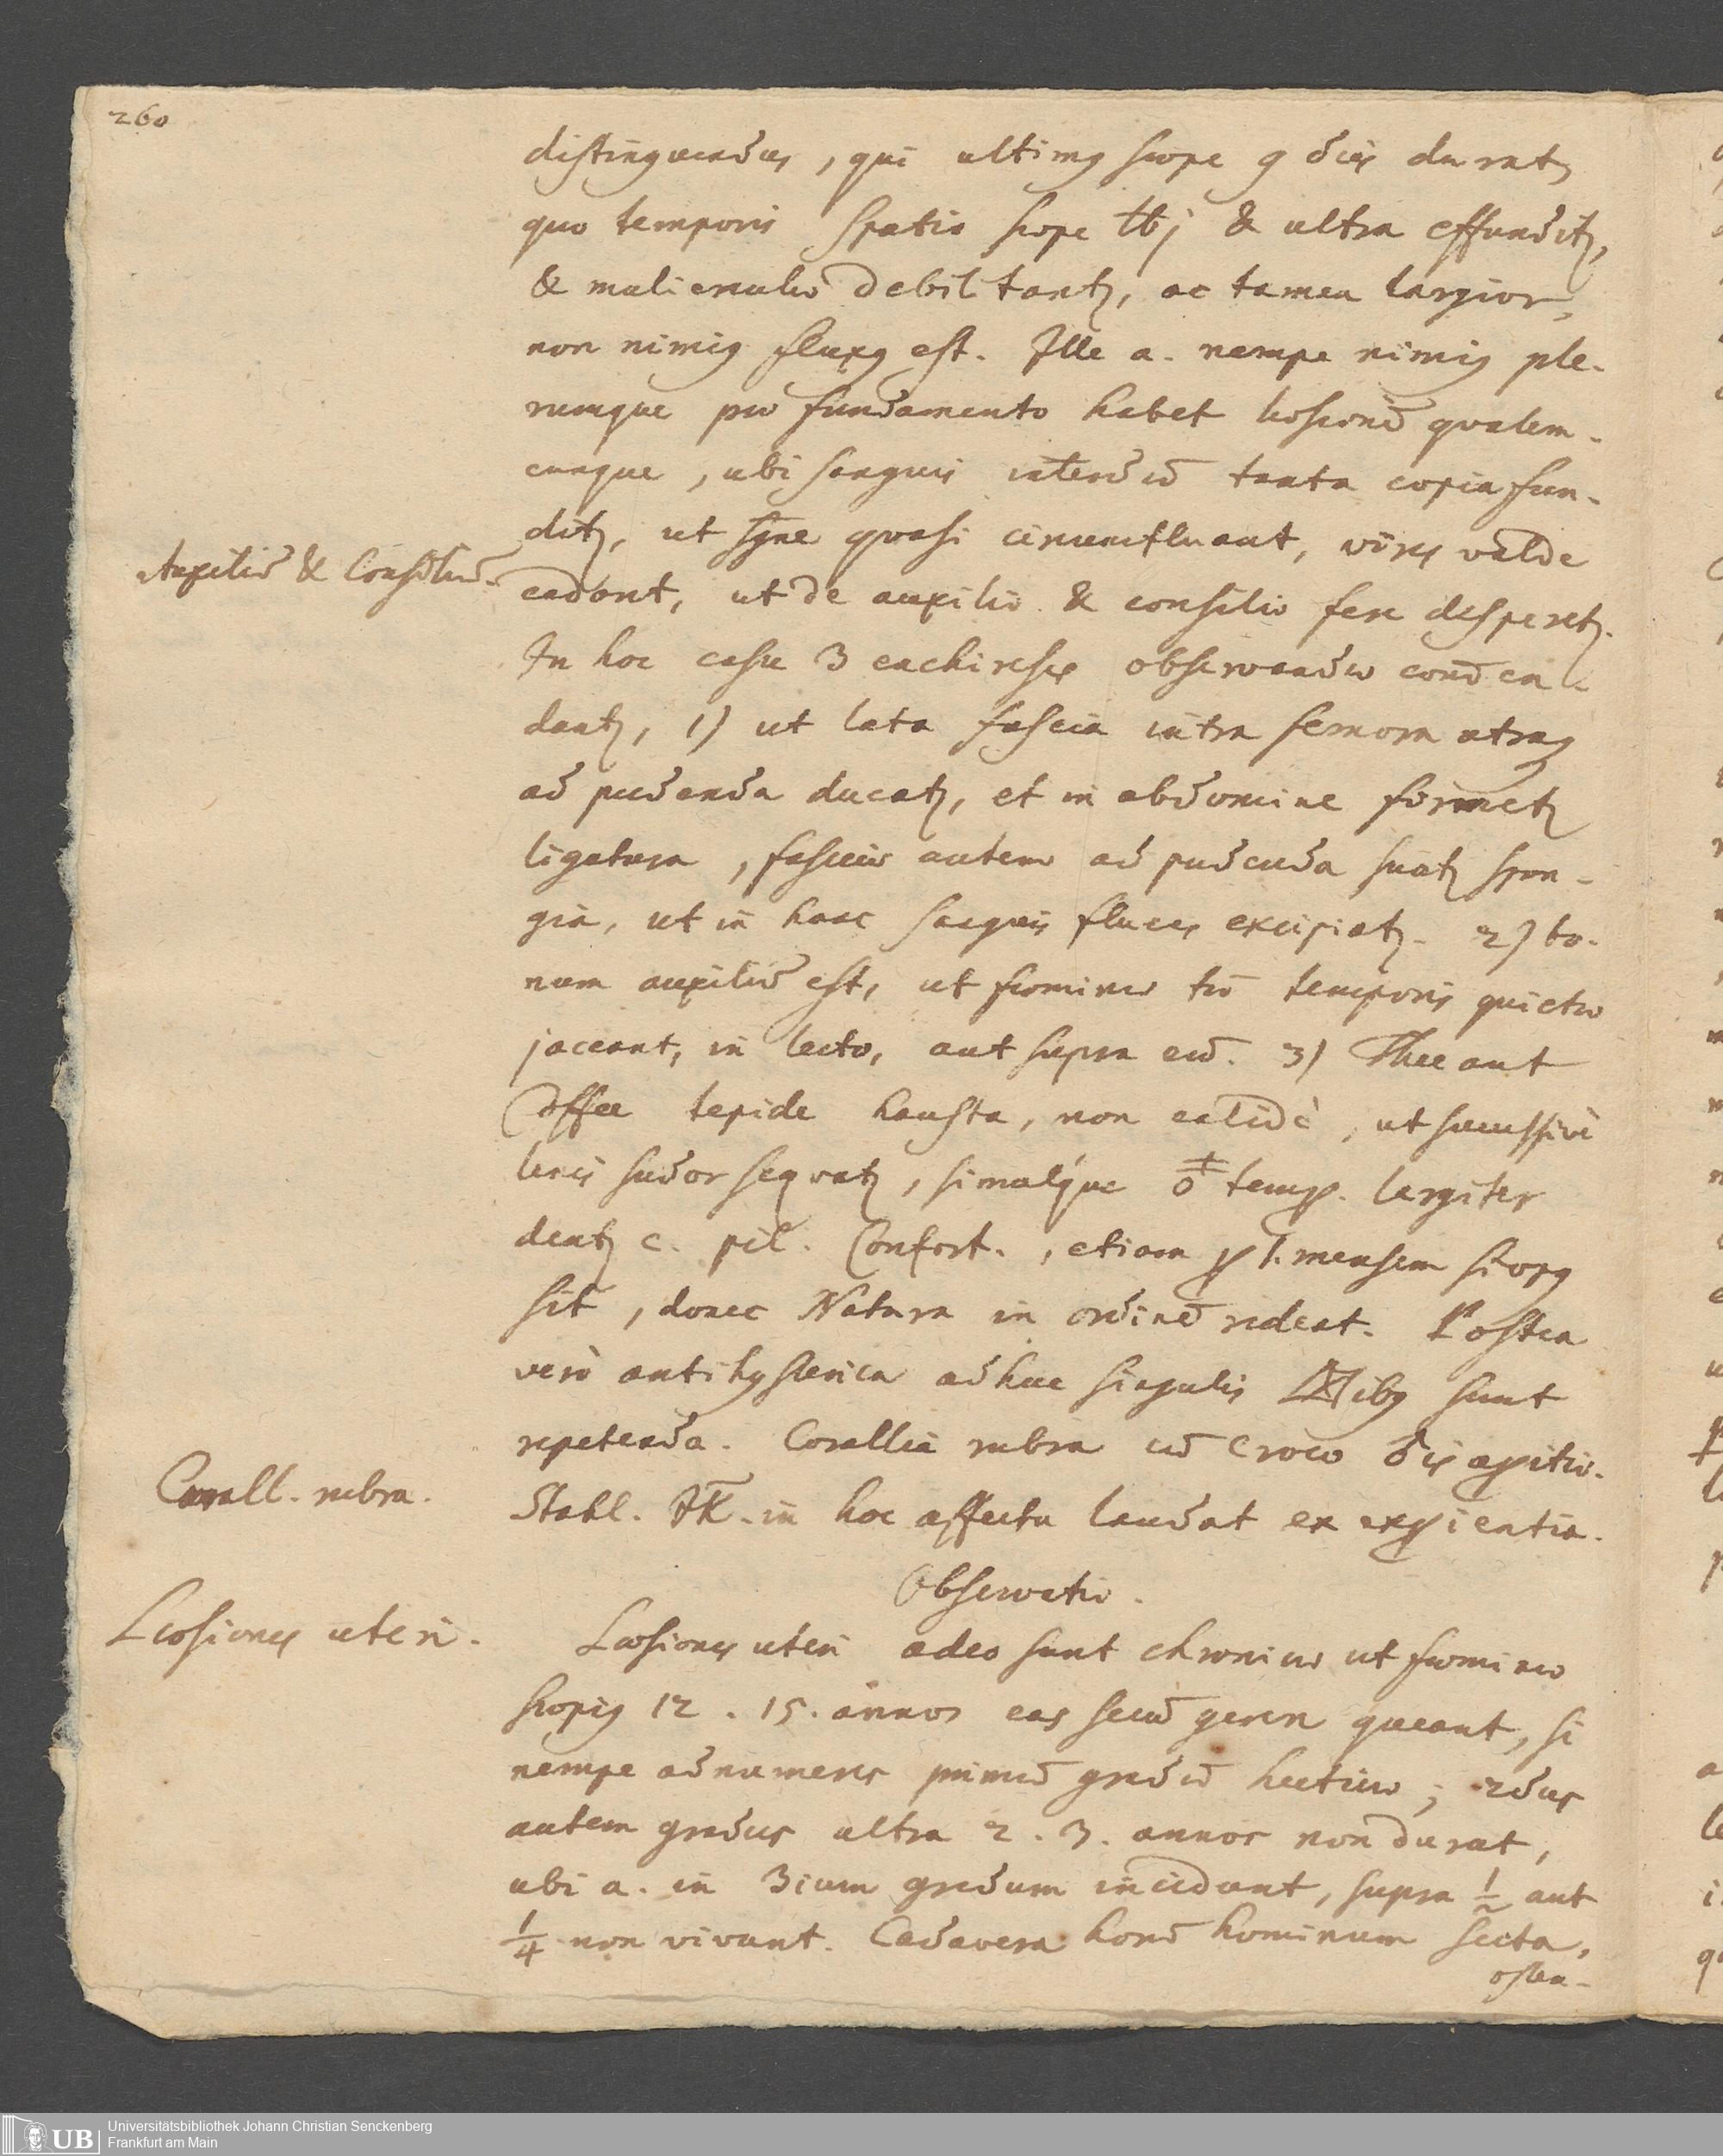 260
distinguendus, qui ultimg sæpe 9 dies duratz
quo temporis spatio sæpe ℔j & ultra effunditz,
& mulierculæ debilitantz, ac tamen largior,
non nimig fluxg est. Ille a. nempe nimig ple-
rumque pro fundamento habet læsionē qualem-
cunque, ubi sanguis interdū tanta copia fun-
ditz, ut sgne quasi circumfluant, vires valde
Auxiliū & Consiliū.
cadant, ut de auxilio & consilio fere desperetz.
In hoc casu 3 enchireses observandæ com̄en-
dantz, 1) ut lata fascia intra femora utrag
ad pudenda ducatz, et in abdomine firmetz
ligatura, fasciæ autem ad pudenda suatz spon-
gia, ut in hanc sanguis fluens excipiatz. 2) bo-
num auxiliū est, ut fœminæ tm̄ temporis quietæ
jaceant, in lecto, aut supra eū. 3) Thee aut
Coffee tepide hausta, non calidè, ut successivè
lenis sudor sequatz, simulque temp. largiter
dentz c. pil. Confort., etiam p 1. mensem si opg
sit, donec Natura in ordinē redeat. Postea
verò antihysterica adhuc singulis ibg sunt
repetenda. Corallia rubra cū croco
Corall. rubra.
Stahl. in hoc affectu laudat ex expientia.
Observatio.
Læsiones uteri.
Læsiones uteri adeo sunt chronicæ ut fœminæ
sæpig 12. 15. annos eas secū gerere queant, si
nempe adnumeres primū gradū hecticæ; 2dus
autem gradus ultra 2. 3. annos non durat,
ubi a. in 3ium gradum incidunt, supra 1/2 aut
1/4 non vivunt. Cadavera horū hominum secta,
osten-
Universitätsbibliothek Johann Christian Senckenberg
Frankfurt am Main
UB